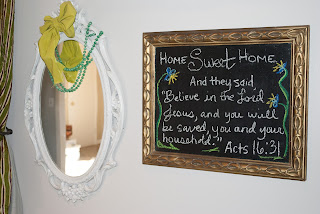 Home Sweet Home
And they said
"Believe in the Lord
Jesus, and you will
be saved, you and your
household." Acts 16:31